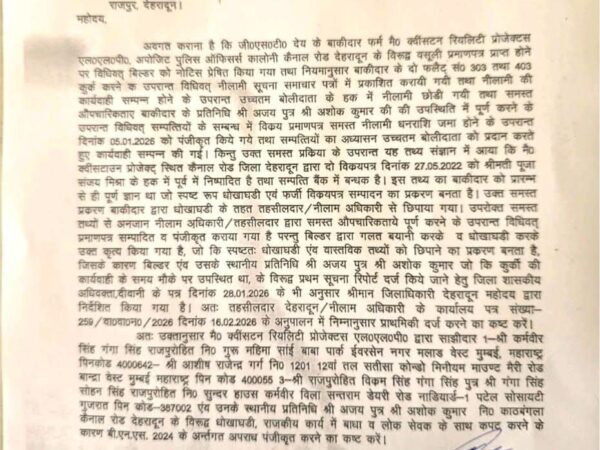 राजपुर, देहरादून।
महोदय,
अवगत कराना है कि जी०एस०टी० देय के बाकीदार फर्म मै० क्वींसटन रियलिटी प्रोजेक्टस
एल०एल०पी०, अपोजिट पुलिस ऑफिसर्स कालोनी कैनाल रोड देहरादून के विरूद्ध वसूली प्रमाणपत्र प्राप्त होने
पर विधिवत् बिल्डर को नोटिस प्रेषित किया गया तथा नियमानुसार बाकीदार के दो फ्लैट् सं० 303 तथा 403
कुर्क करने क उपरान्त विधिवत् नीलामी सूचना समाचार पत्रों में प्रकाशित करायी गयी तथा नीलामी की
कार्यवाही सम्पन्न होने के उपरान्त उच्चतम बोलीदाता के हक में नीलामी छोडी गयी तथा समस्त
औपचारिकताए बाकीदार के प्रतिनिधि श्री अजय पुत्र श्री अशोक कुमार की की उपस्थिति में पूर्ण करने के
उपरान्त विधिवत सम्पत्तियों के सम्बन्ध में विक्रय प्रमाणपत्र समस्त नीलामी धनराशि जमा होने के उपरान्त
दिनांक 05.01.2026 को पंजीकृत किये गये तथा सम्पत्तियों का अध्यासन उच्चतम बोलीदाता को प्रदान करते
हुए कार्यवाही सम्पन्न की गई। किन्तु उक्त समस्त प्रकिया के उपरान्त यह तथ्य संज्ञान में आया कि मै०
क्वींसटाउन प्रोजेक्ट स्थित कैनाल रोड जिला देहरादून द्वारा दो विकयपत्र दिनांक 27.05.2022 को श्रीमती पूजा
संजय मिश्रा के हक में पूर्व में निष्पादित है तथा सम्पत्ति बैंक में बन्धक है। इस तथ्य का बाकीदार को प्रारम्भ
से ही पूर्ण ज्ञान था जो स्पष्ट रूप धोखाधडी एंव फर्जी विकयपत्र सम्पादन का प्रकरण बनता है। उक्त समस्त
प्रकरण बाकीदार द्वारा धोखाधडी के तहत तहसीलदार/नीलाम अधिकारी से छिपाया गया। उपरोक्त समस्त
तथ्यों से अनजान नीलाम अधिकारी/तहसीलदार द्वारा समस्त औपचारिकताये पूर्ण करने के उपरान्त विधिवत्
प्रमाणपत्र सम्पादित व पंजीकृत कराया गया है परन्तु बिल्डर द्वारा गलत बयानी करके व धोखाधडी करके
उक्त कृत्य किया गया है, जो कि स्पष्टतः धोखाधडी एंव वास्तविक तथ्यों को छिपाने का प्रकरण बनता है,
जिसके कारण बिल्डर एंव उसके स्थानीय प्रतिनिधि श्री अजय पुत्र श्री अशोक कुमार जो कि कुर्की की
कार्यवाही के समय मौके पर उपस्थित था, के विरूद्ध प्रथम सूचना रिपोर्ट दर्ज किये जाने हेतु जिला शासकीय
अधिवक्ता,दीवानी के पत्र दिनांक 28.01.2026 के भी अनुसार श्रीमान जिलाधिकारी देहरादून महोदय द्वारा
निर्देशित किया गया है। अतः तहसीलदार देहरादून/नीलाम अधिकारी के कार्यालय पत्र संख्या-
259/वा०वा०न०/2026 दिनांक 16.02.2026 के अनुपालन में निम्नानुसार प्राथमिकी दर्ज करने का कष्ट करें।
अतः उक्तानुसार मै० क्वींसटन रियलिटी प्रोजेक्टस एल०एल०पी० द्वारा साझीदार 1-श्री कर्मवीर
सिंह गंगा सिंह राजपुरोहित नि० गुरू महिमा साई बाबा पार्क ईवरसेन नगर मलाड वेस्ट मुम्बई, महाराष्ट्र
पिनकोड 4000642- श्री आशीष राजेन्द्र गर्ग नि० 1201 12वां तल सतीसा कोन्डो मिनीयम माउण्ट मैरी रोड
बान्द्रा वेस्ट मुम्बई महाराष्ट्र पिन कोड 400055 3-श्री राजपुरोहित विकम सिंह गंगा सिंह पुत्र श्री गंगा सिंह
सोहन सिंह राजपुरोहित नि० सुन्दर हाउस कर्मवीर विला सन्तराम डेयरी रोड नाडियार्ड-1 पटेल सोसायटी
गुजरात पिन कोड-387002 एंव उनके स्थानीय प्रतिनिधि श्री अजय पुत्र श्री अशोक कुमार नि० काठबंगला
कैनाल रोड देहरादून के विरूद्ध धोखाधडी, राजकीय कार्य में बाधा व लोक सेवक के साथ कपट करने के
कारण बी.एन.एस. 2024 के अर्न्तगत अपराध पंजीकृत करने का कष्ट करें।